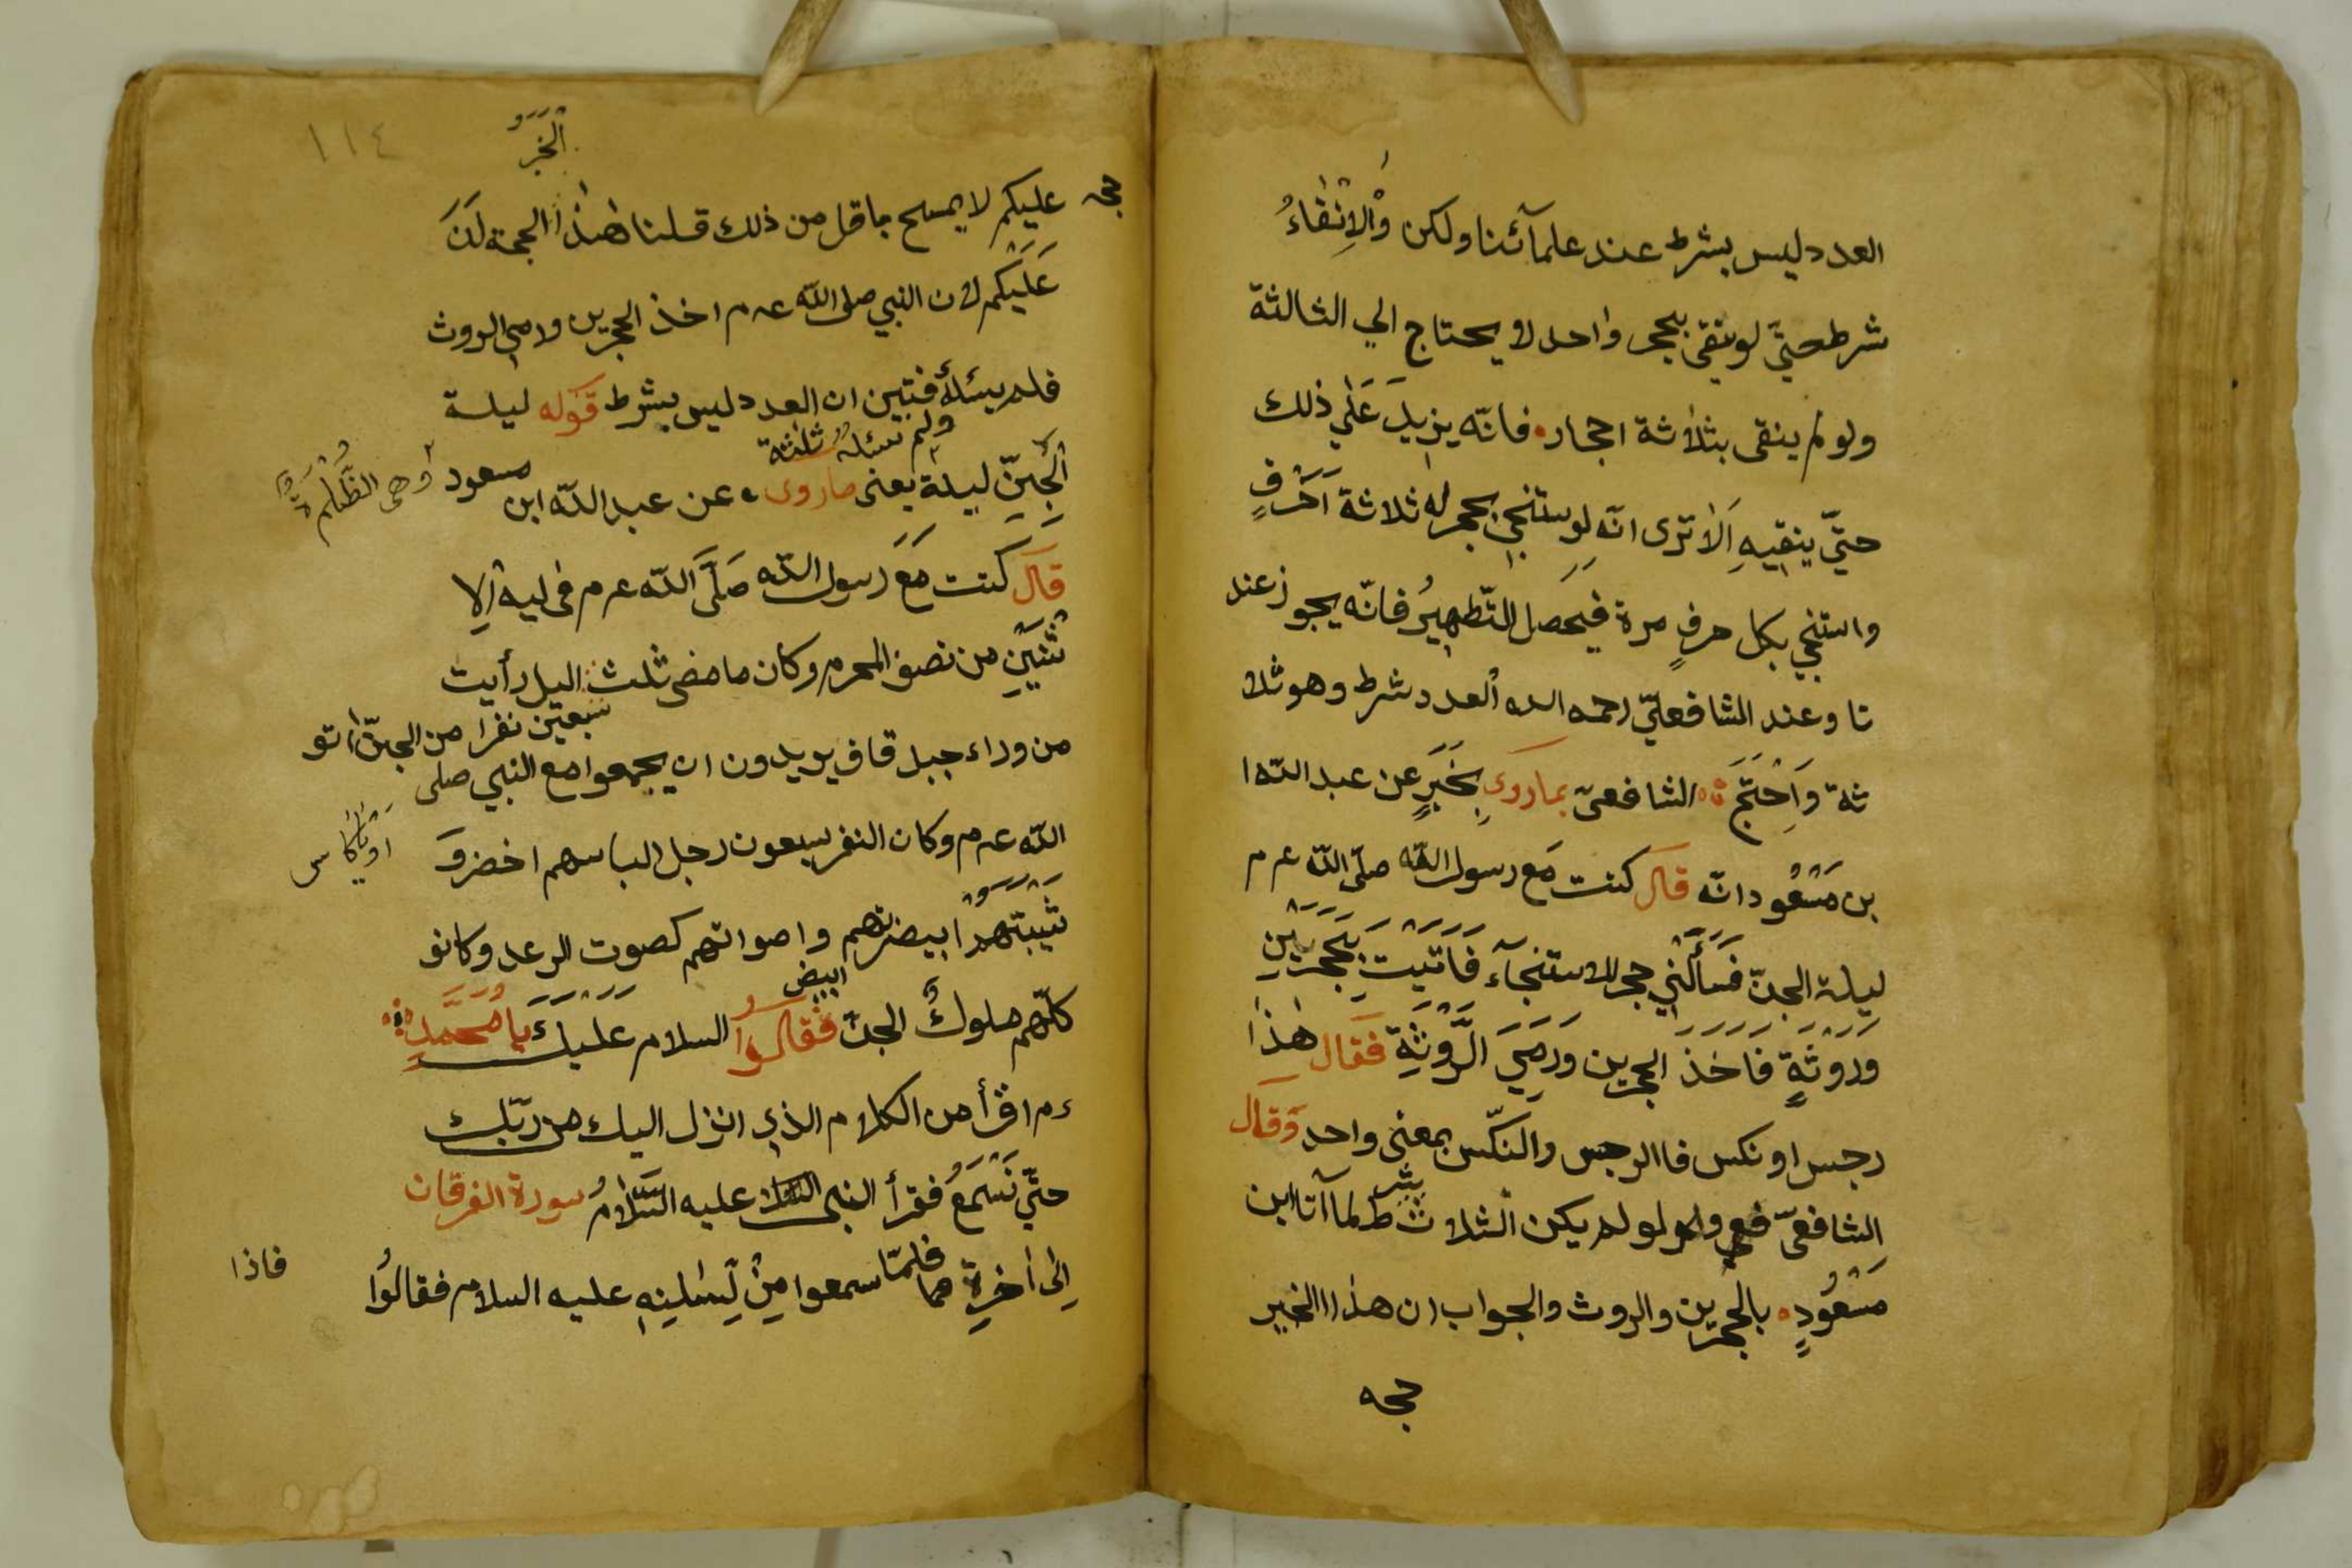 العدد ليس بشرط عند علمآئنا ولكن وَالْاِنْقٰاءُ
شرط حتّي لوينقي بحجر واحد لا يحتاج الي الثالثة
ولو لم ينقى بثلاثة احجار فانّه يزيدَ عَلٰي ذلك
حتّي ينقيهِ اَلا ترى انّه لو ستنجي بحجر له ثلاثة اَحْرَفٍ
واستنجي بكل حرفٍ مرة فيَحَصل التّطهيرُ فانّه يجوز عند
نا وعند الشافعيّ رحمه الله العدد شرط وهو ثلا
ثة وَاِحْتَجَّ الشافعىّ بماروي بِخَبَرٍ عن عبد اللّه ا
بن مَسْعُود انّه قال كنت مَع رسول اللّه صلّى اللّه ع م
ليلة الجنّ فَسَأَلَنْي حجر للاستنجآء فَاَتَيْتَ بِحَجَرَيْنِ
وَرَوْثَةٍ فَاَخَذَ الحجرين وَرَمِيَ الرَّوْثَةِ فَقَال هٰذا
رجس او نكس فاالرجس والنكّس بمعنى واحد وَقال
الشافعىّ لو لم يكن الثلاث بشرط لما آتا ابن
مَسْعُودٍ بالحجرين والروث والجواب ان هذا الخبر
حجه
١١٤
الْخَبَرُ
حجه عليكم لا يصلح باقل من ذلك قلنا هٰذا الحجة لَنَ
عَلَيْكم لان النبي صلى اللّه ع م اخذ الحجرين ورمي الروث
فلم يسئلهُ فتبين ان العدد ليس بشرط قوله ليلة
ولم يسئلهُ ثلثة
اْلجِنّ ليلة يعنى ماروى عن عبد اللّه ابن مسعود
وهى الظّلْمَةُ
قال كنت مَعَ رَسول اللّه صَلَّىَ اللّه ع م فى ليه اْلاِ
ثْنَيْنِ من نصف المحرم وكان ما مضى ثلث اليل رأيت
سبعين نفرا من الجنّ اتو
من وراء جبل قاف يريدون ان يجمعوا مع النبي صلى
اللّه ع م وكان النفر سبعون رجل لباسهم اخضر وَ
ثيبتهم ابيضرتهم واصواتهم كصوت الرعد وكانو
ابيض
كلّهم ملوكُ الجن فَقَالُوا السلام عَلَيْكَ يا مُحَمَّدٍ
ء م اقرأ من الكلام الذي انزل اليك من ربّك
حتّي نَسْمَعُ فقرأ النبى عليه السَّلامُ سورة الفرقان
اِلٰى اٰخِرِهٖ هما فلمّا سمعوا مِنْ لِسٰانِهٖ عليه السلام فقالوُا
فاذا